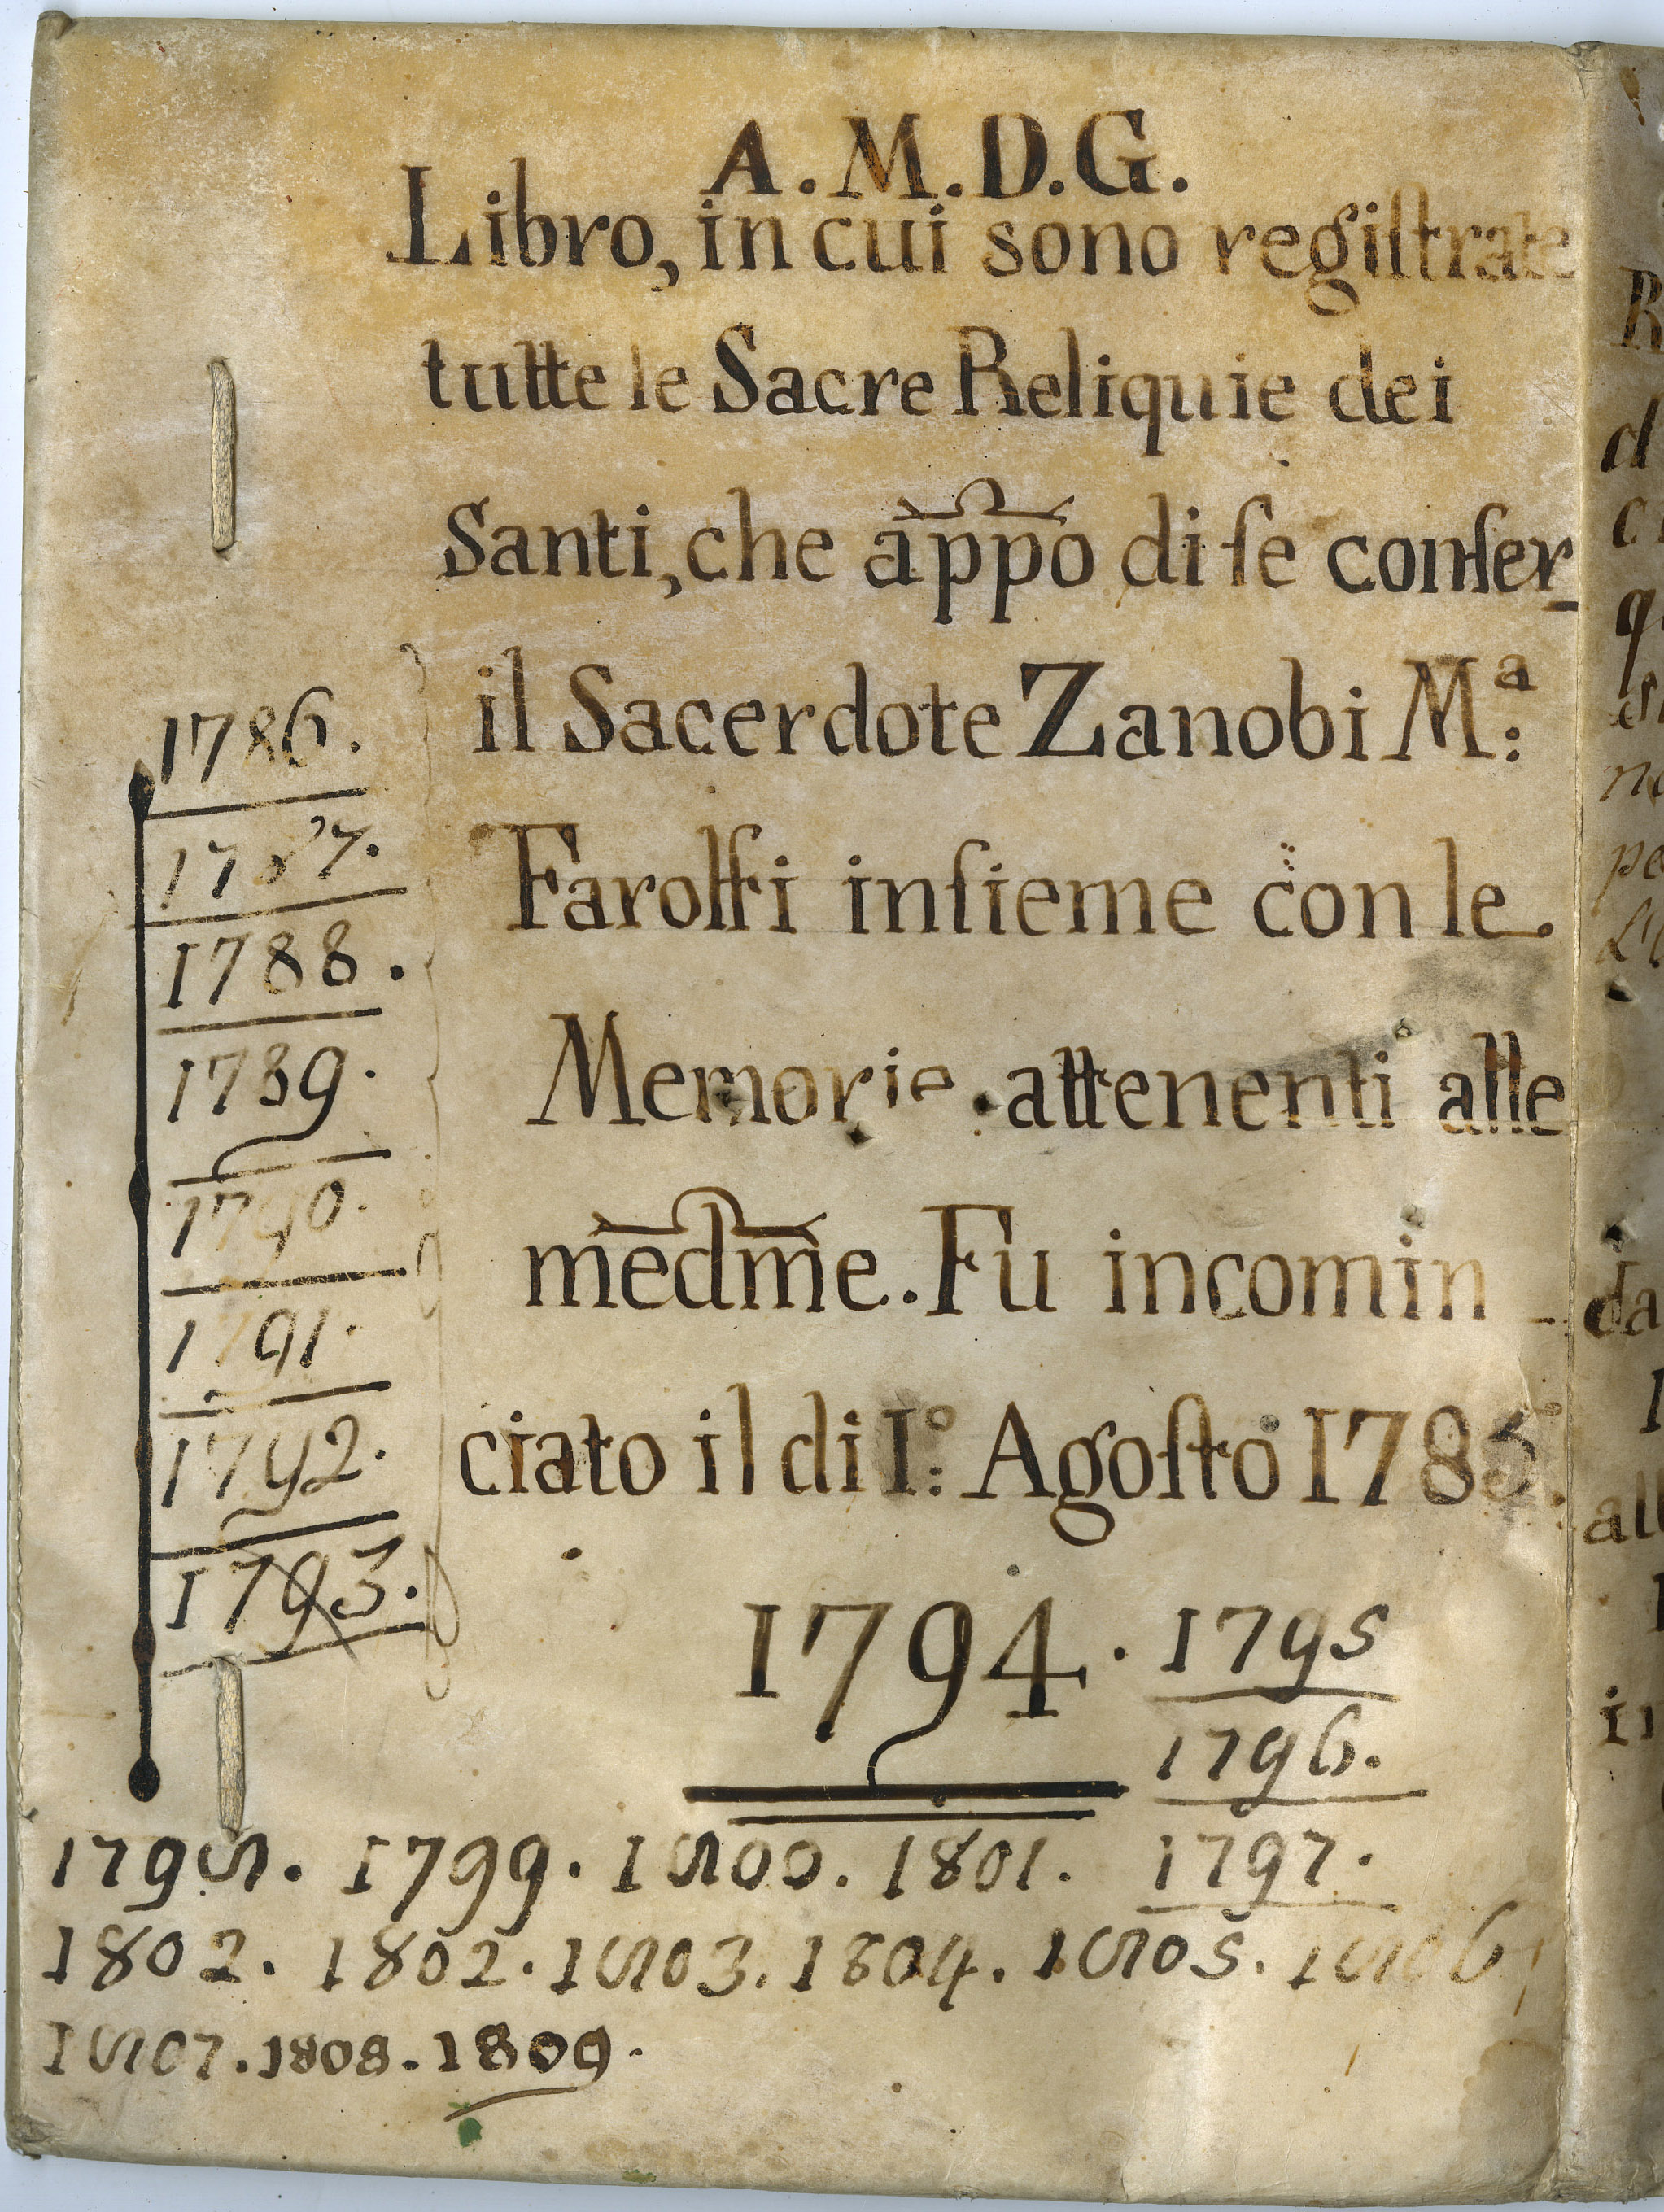 A. M. D. G.
Libro, in cui sono regiſtrate
tutte le Sacre Reliquie dei
Santi, che appo di ſe conſer_
il Sacerdote Zanobi M.ª
Farolfi inſieme con le
Memorie attenenti alle
med̅me. Fù incomin_
ciato il di I.º Agoſto 1785.
1786.
1787.
1788.
1789.
1790.
1791.
1792.
1793.
1794. 1795
1796.
1797.
1798. 1799. 1800. 1801.
1802. 1802. 1803. 1804. 1805. 1806
1807. 1808. 1809.